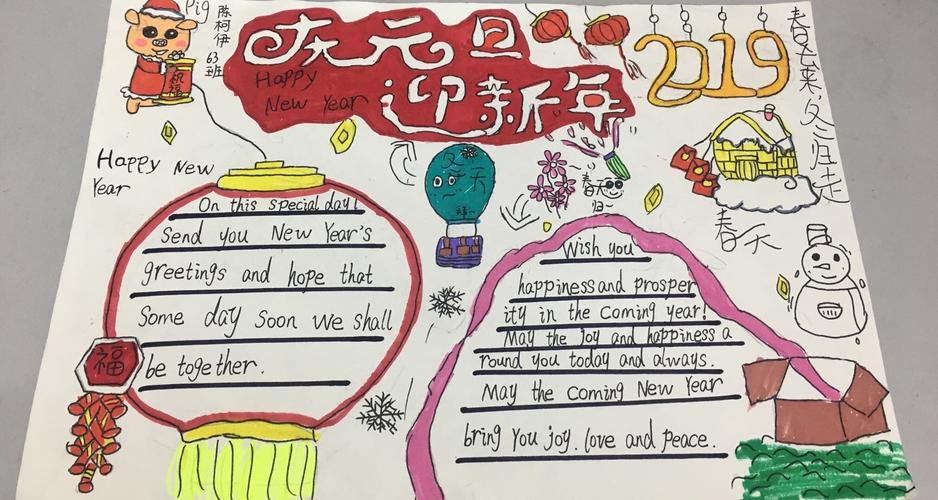 Pig
陈柯伊
63班
祝福
庆元旦
迎新年
Happy
New Year
2019
Happy New
Year
On this special day!
Send you New Year's
greetings and hope that
Some day soon we shall
be together.
福
冬天
拜~
春天
归~
春天
Wish you
happiness and prosper
ity in the coming year!
May the joy and happiness a
round you today and always.
May the coming New Year
bring you joy. love and peace.